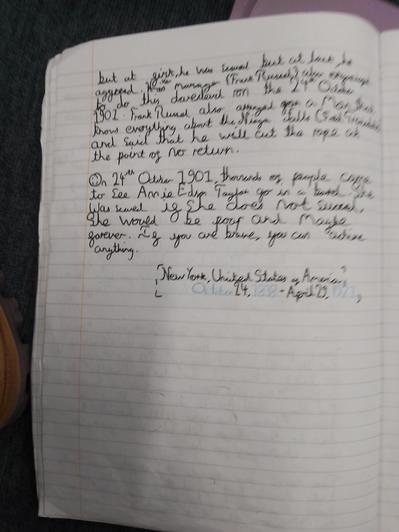 but at first, he was scared but at last, he
aggreed. Her manager (Frank Russel) also
to do this daredevil on the 24th October
1901. Frank Russel also arranged a Man that
knows everything about the Niagra Falls
and said that he will cut the rope at
the point of no return.
On 24th October 1901, thousands of people came
to see Annie Edson Taylor go in a barrel. She
was scared if she does not succeed,
she would be poor and Maybe
forever. If you are brave, you can achive
anything.
[New York, Unighted States of America,
October 24, 1838 - April 29, 1921,